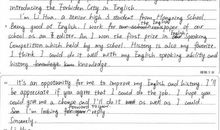 introducing the Forbidden City in English.
I'm Li Hua, a Senior High 3 student from Hongxing High.
Being good at English, I work for the English of
our school as an editor. An I won the first prize in the English Speaking
Competition which held by my school. History is also my favorite.
I think I could do it well with my English speaking ability and
history knowledge.
It's an opportunity for me to improve my English and history. I'll
be appreciate if you agree that I could do the job. I hope you
could give me a change and I'll do it as well as I could.
I am looking forward to your reply.
Sincerely,
Li Hua